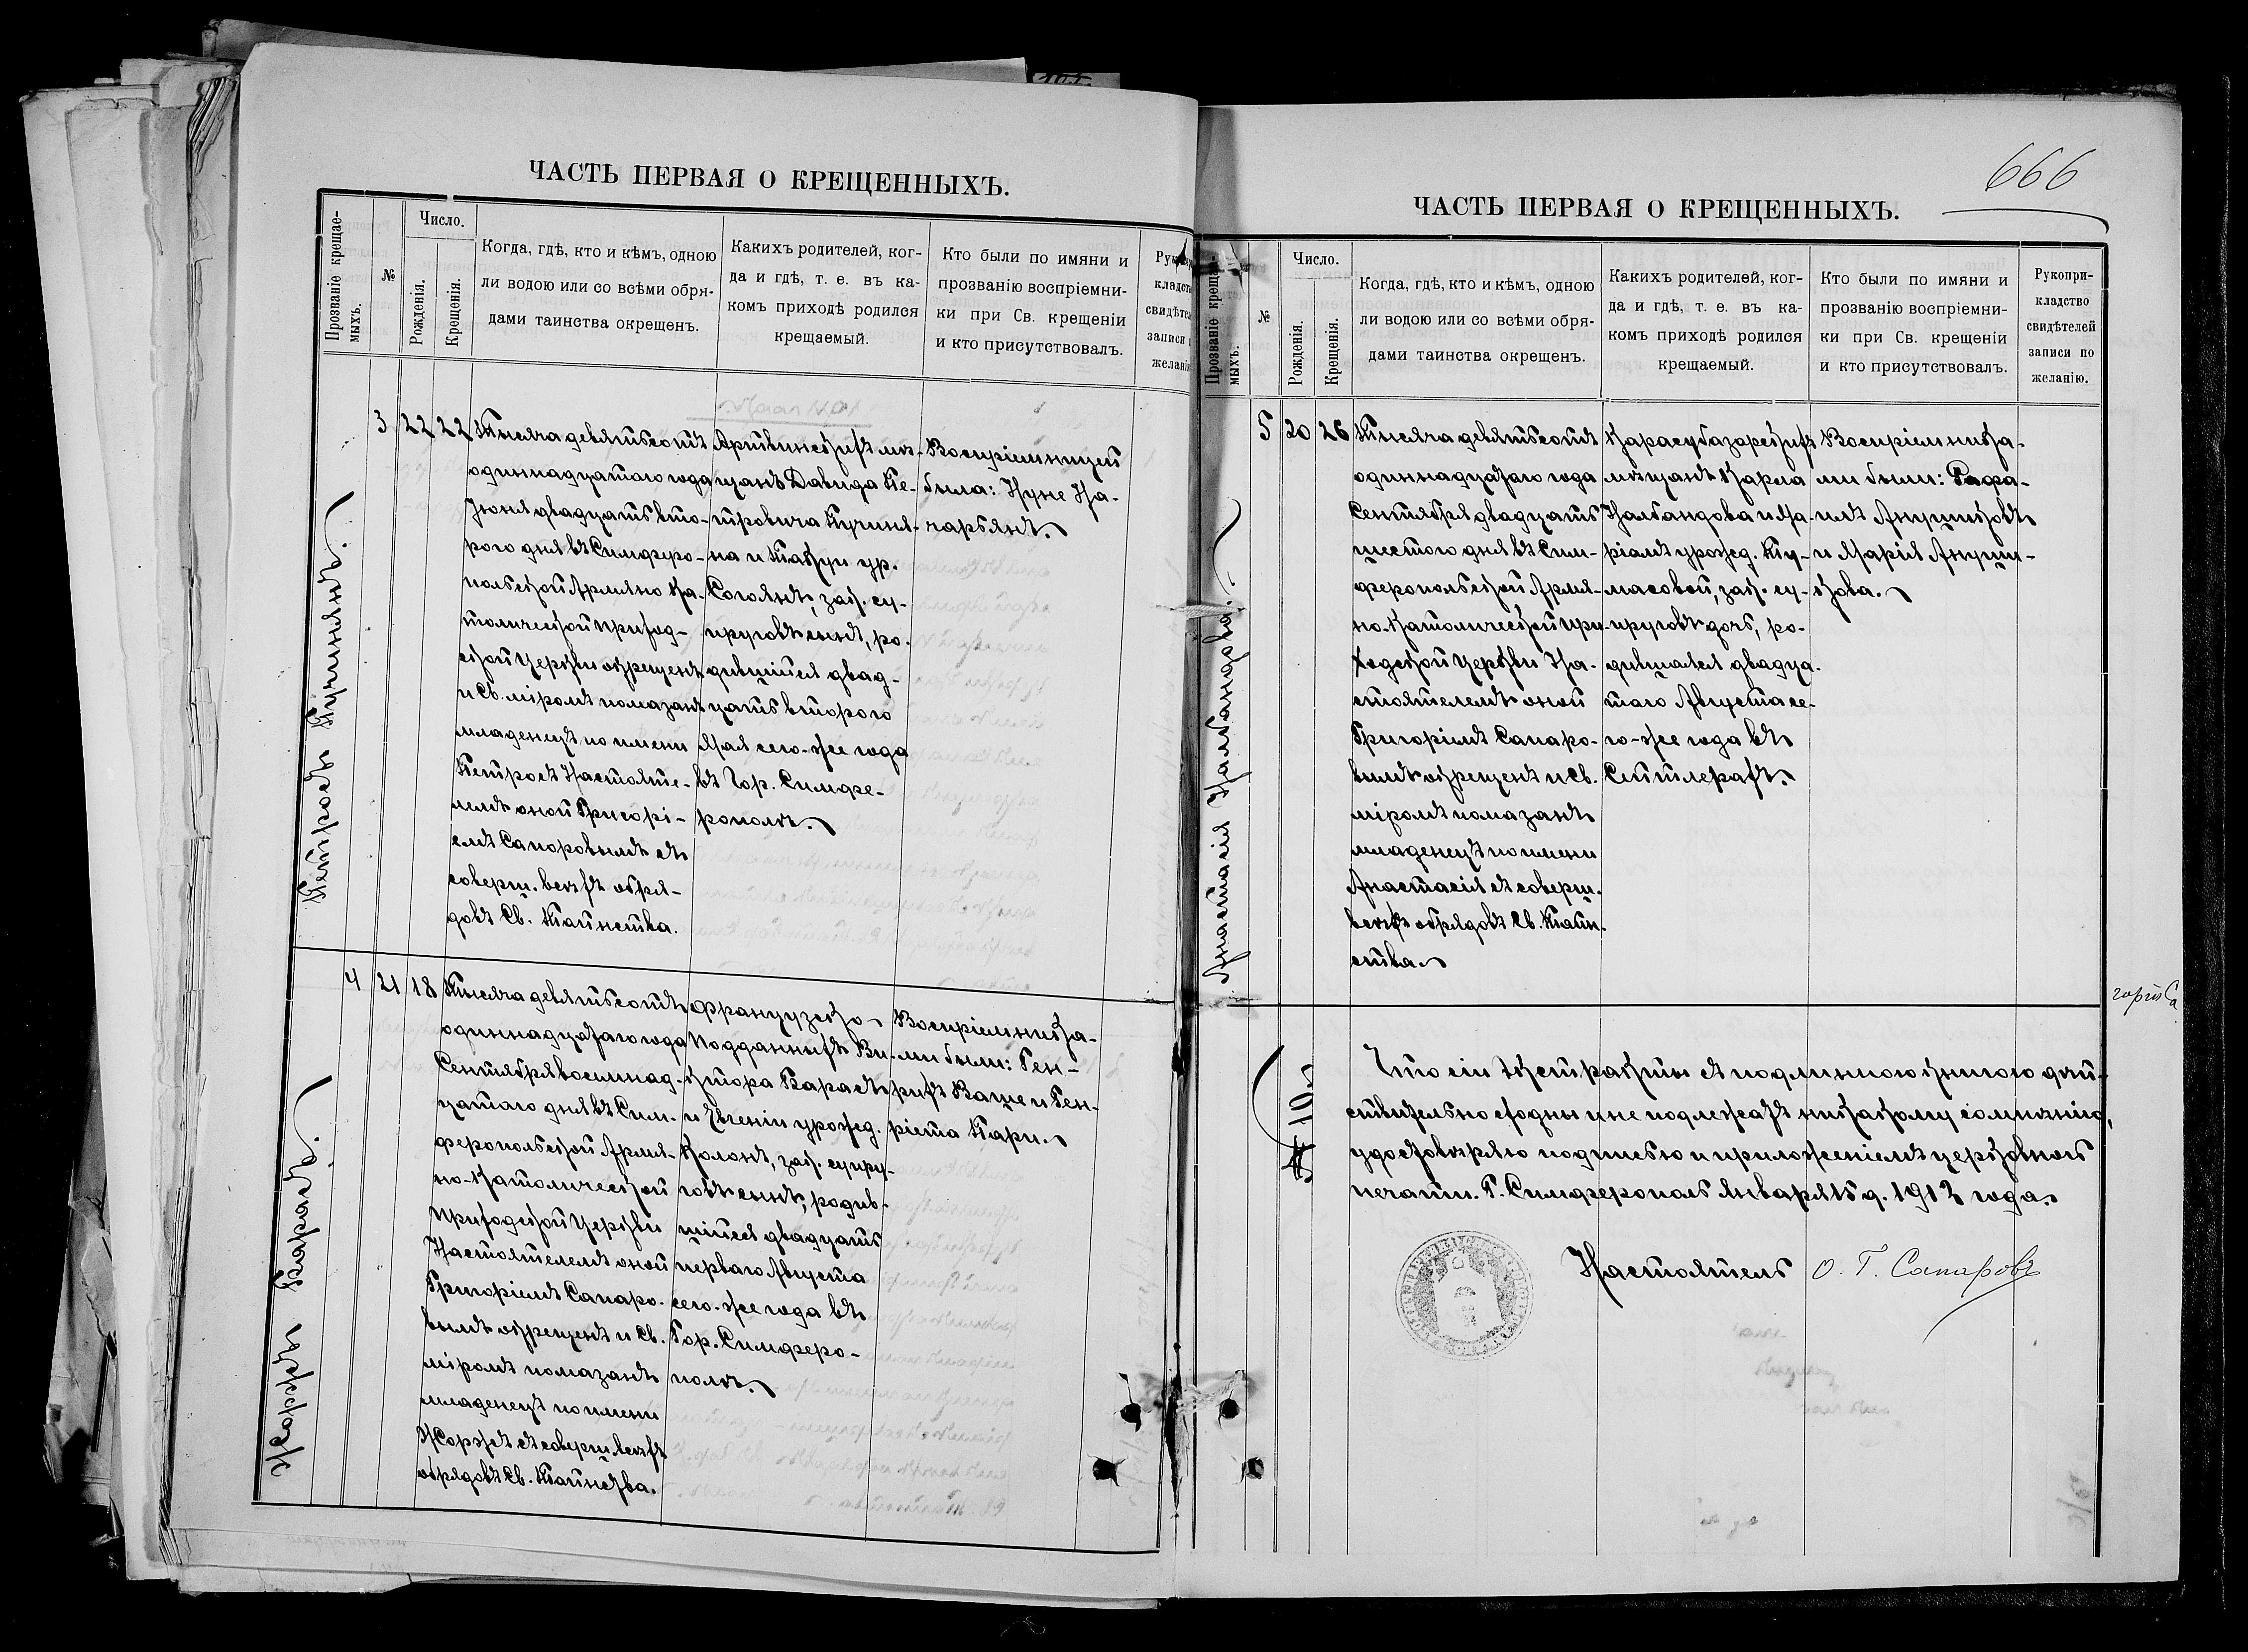 ЧАСТЬ ПЕРВАЯ О КРЕЩЕННЫХЪ.
Прозваніе крещае-
мыхъ.
№
Число.
Рожденія.
Крещенія.
Когда, гдѣ, кто и кѣмъ, одною
ли водою или со всѣми обря-
дами таинства окрещенъ.
Какихъ родителей, ког-
да и гдѣ, т. е. въ ка-
комъ приходѣ родился
крещаемый.
Кто были по имяни и
прозванію воспріемни-
ки при Св. крещеніи
и кто присутствовалъ.
кладст
свидѣтел
записи
желанію
Петросъ Кучинянъ.
3
22
22
Тысяча девятьсотъ
одиннадцатаго года
Іюня двадцать вто-
рого дня въ Симферо-
польской Армяно Ка-
толической приход-
ской Церкви окрещенъ
и Св. міромъ помазанъ
младенецъ по имени
Петросъ Настояте-
лемъ оной Григорі-
емъ Сапаровымъ съ
соверш. всѣхъ обря-
довъ Св. Таинства.
Артвинскихъ мѣ-
щанъ Давида Пе-
тровича Кучиня-
на и Такуи ур.
Согоянъ, зак. су-
пруговъ сынъ, ро-
дившійся двад-
цать второго
Мая сего-же года
въ Гор. Симфе-
рополѣ.
Воспріемницей
была: Нуне На-
чарьянъ.
Жоржъ Барасъ.
4
21
18
Тысяча девятьсотъ
одиннадцатаго года
Сентября восемнад-
цатаго дня въ Сим-
феропольской Армя-
но-Католической
приходской Церкви
Настоятелемъ оной
Григоріемъ Сапаро-
вымъ окрещенъ и Св.
міромъ помазанъ
младенецъ по имени
Жоржъ съ соверш. всѣхъ
обрядовъ Св. Таинства.
Французско-
Подданныхъ Ви-
ктора Барасъ
и Евгеніи урожд.
Колонъ, зак. супру-
говъ сынъ, родив-
шійся двадцать
перваго Августа
сего-же года въ
Гор. Симферо-
полѣ.
Воспріемника-
ми были: Ген-
рихъ Ваше и Ген-
ріета Пари.
666
ЧАСТЬ ПЕРВАЯ О КРЕЩЕННЫХЪ.
Прозваніе крещае-
мыхъ.
№
Число.
Рожденія.
Крещенія.
Когда, гдѣ, кто и кѣмъ, одною
ли водою или со всѣми обря-
дами таинства окрещенъ.
Какихъ родителей, ког-
да и гдѣ, т. е. въ ка-
комъ приходѣ родился
крещаемый.
Кто были по имяни и
прозванію воспріемни-
ки при Св. крещеніи
и кто присутствовалъ.
Рукопри-
кладство
свидѣтелей
записи по
желанію.
Анастасія Налбандова.
5
20
26
Тысяча девятьсотъ
одиннадцатаго года
Сентября двадцать
шестого дня въ Сим-
феропольской Армя-
но-Католической при-
ходской Церкви На-
стоятелемъ оной
Григоріемъ Сапаро-
вымъ окрещенъ и Св.
міромъ помазанъ
младенецъ по имени
Анастасія съ соверш.
всѣхъ обрядовъ Св. Таин-
ства.
Карасубазарскихъ
мѣщанъ Карла
Налбандова и Ма-
ріамъ урожд. Ту-
масовой, зак. су-
пруговъ дочь, ро-
дившаяся двадца-
таго Августа се-
го-же года въ
Сейтлерахъ.
Воспріемника-
ми были: Рафа-
илъ Анушковъ
и Марія Ануш-
кова.
№ 10
Что сіи экстракты съ подлинною книгою дѣй-
ствительно сходны и не подлежатъ никакому сомнѣнію,
удостовѣряю подписью и приложеніемъ церковной
печати. Г. Симферополь Января 15 д. 1912 года.
Настоятель О. Г. Сапаровъ